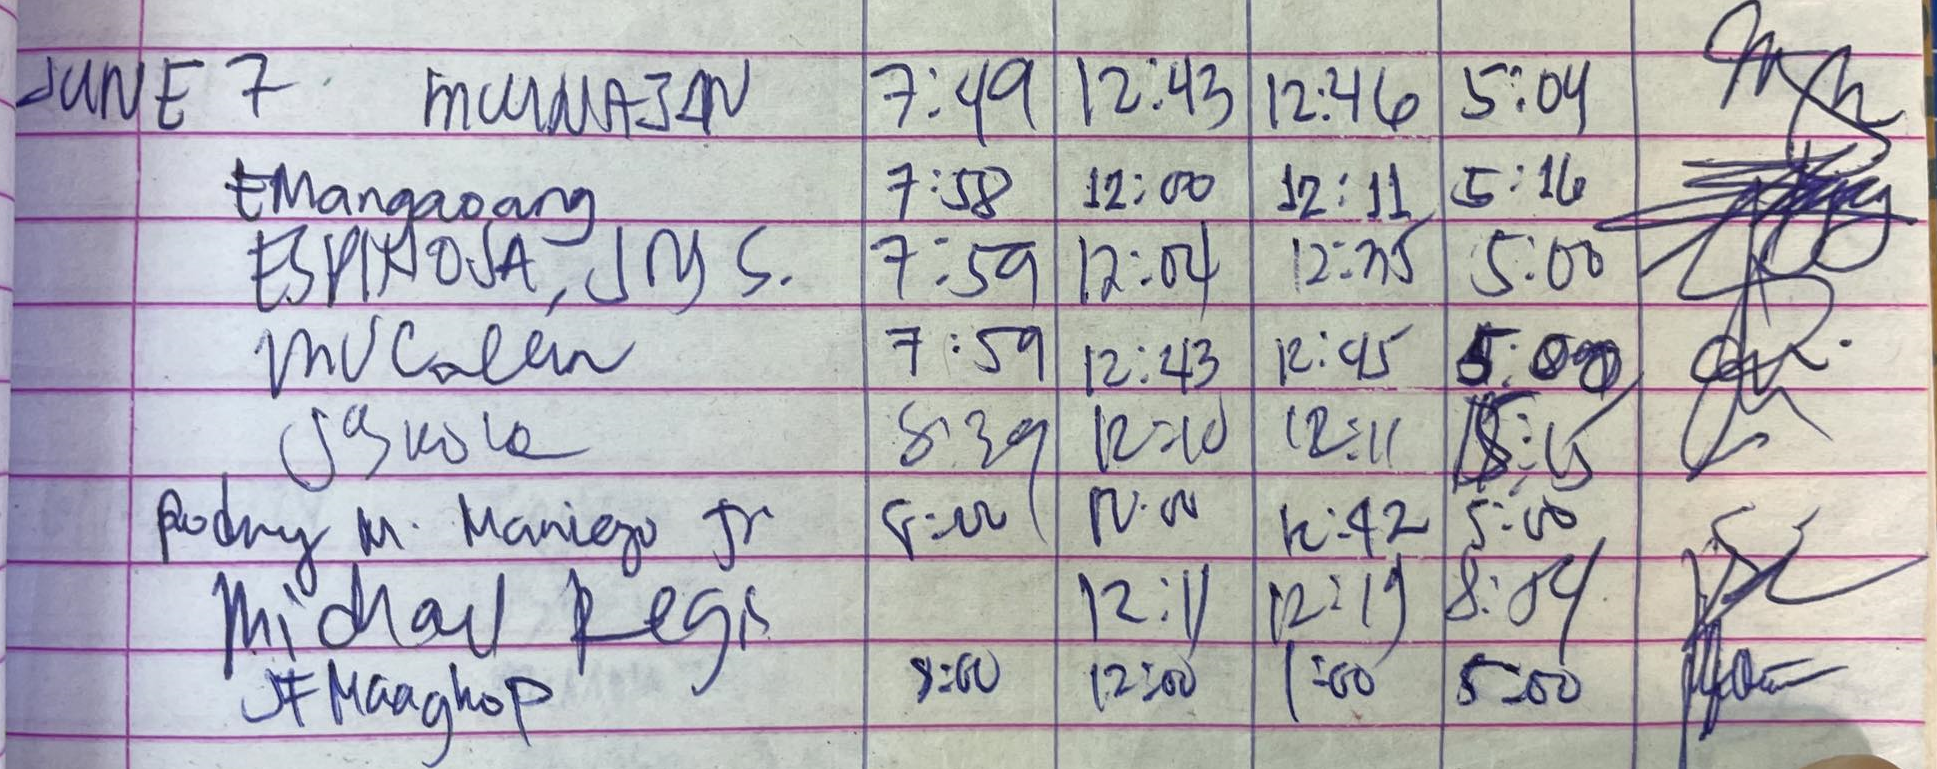 JUNE 7 7:49 12:43 12:46 5:04
EMangaoang 7:58 12:00 12:11 5:16
ESPINOSA, JMY S. 7:59 12:04 5:00
7:59 12:43 12:45 5:00
8:39 12:10 12:11
Rodny M. Maniego Jr 8:00 12:00 12:42 5:00
Michael Regis 12:11 12:19 8:04
JFMaaghop 8:00 12:00 1:00 5:00